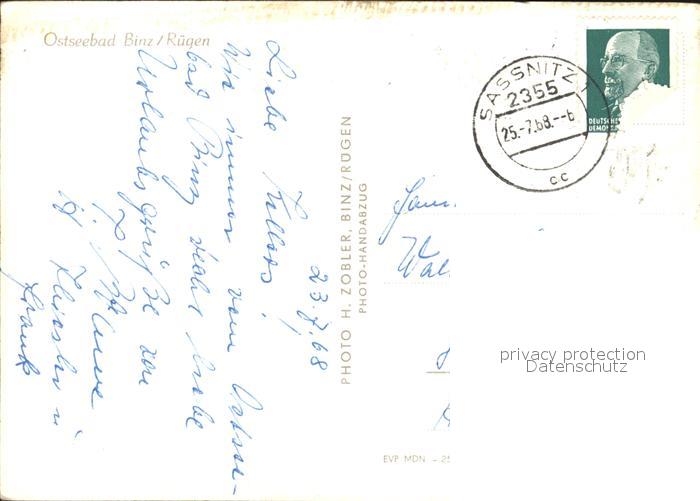 Ostseebad Binz / Rügen
23.7.68
Liebe
Wie immer vom Ostsee-
bad Binz recht liebe
Urlaubsgrüße von
u.
Frank
PHOTO H. ZOBLER, BINZ/RÜGEN
PHOTO-HANDABZUG
SASSNITZ 1
2355
25.-7.68.--6
cc
DEUTSCHE
DEMOK
Fam.
Wal
privacy protection
Datenschutz
EVP MDN -.25